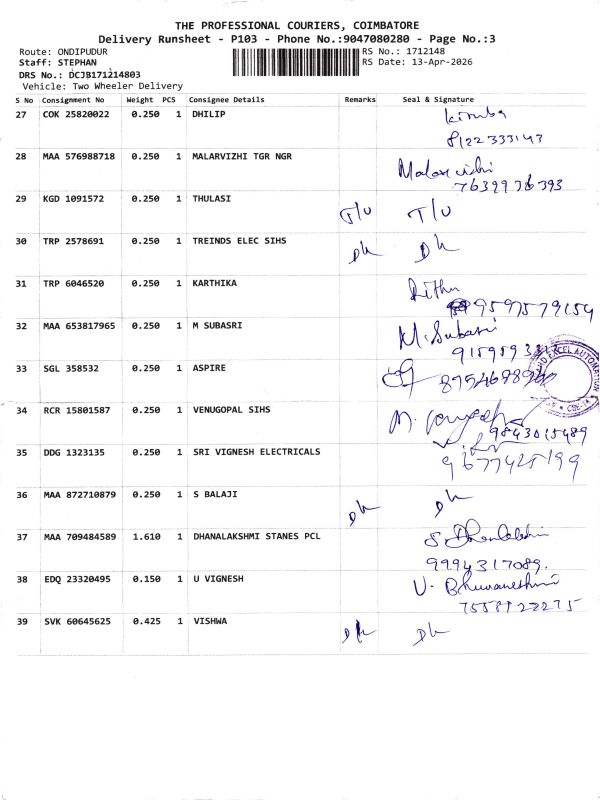 THE PROFESSIONAL COURIERS, COIMBATORE
Delivery Runsheet - P103 - Phone No.:9047080280 - Page No.:3
Route: ONDIPUDUR RS No.: 1712148
Staff: STEPHAN RS Date: 13-Apr-2026
DRS No.: DCJB171214803
Vehicle: Two Wheeler Delivery
S No Consignment No Weight PCS Consignee Details Remarks Seal & Signature
27 COK 25820022 0.250 1 DHILIP
8122333143
28 MAA 576988718 0.250 1 MALARVIZHI TGR NGR Malarvizhi
7639976393
29 KGD 1091572 0.250 1 THULASI T/U T/U
30 TRP 2578691 0.250 1 TREINDS ELEC SIHS DK DK
31 TRP 6046520 0.250 1 KARTHIKA Rithu
9597579154
32 MAA 653817965 0.250 1 M SUBASRI M. Subasri
33 SGL 358532 0.250 1 ASPIRE
34 RCR 15801587 0.250 1 VENUGOPAL SIHS
9843015489
35 DDG 1323135 0.250 1 SRI VIGNESH ELECTRICALS
9677425199
36 MAA 872710879 0.250 1 S BALAJI DK DK
37 MAA 709484589 1.610 1 DHANALAKSHMI STANES PCL
9994317089.
38 EDQ 23320495 0.150 1 U VIGNESH U. Bhuvaneshini
39 SVK 60645625 0.425 1 VISHWA DK DK